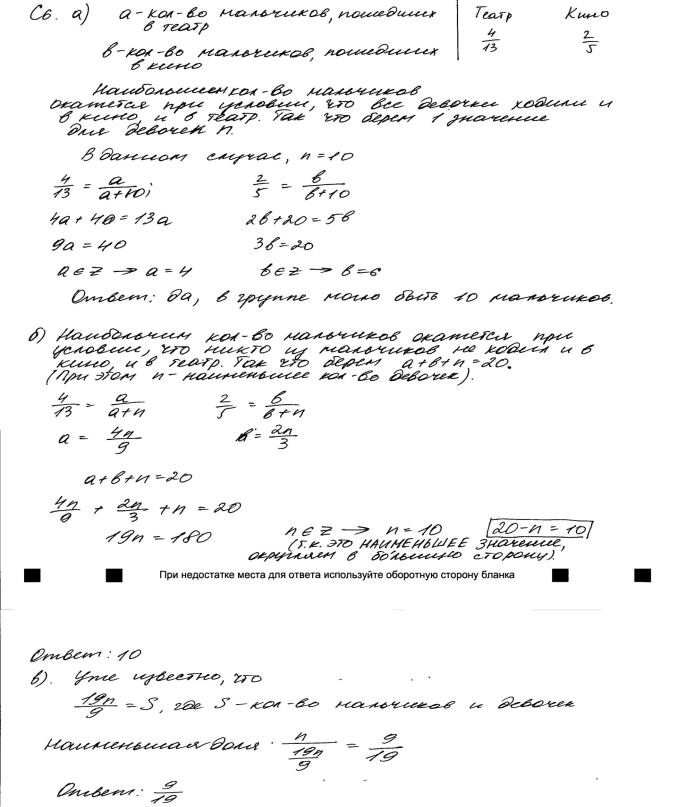 С6. а) а-кол-во мальчиков, пошедших в театр
в-кол-во мальчиков, пошедших в кино
Театр Кино
4/13 2/5
Наибольшее кол-во мальчиков
окажется при условии, что все девочки ходили и
в кино, и в театр. Так что берем 1 значение
для девочек n.
В данном случае, n=10
4/13 = a/(a+10); 2/5 = в/(в+10)
4a+40=13a 2в+20=5в
9a=40 3в=20
a∈Z → a=4 в∈Z → в=6
Ответ: да, в группе могло быть 10 мальчиков.
б) Наибольшим кол-во мальчиков окажется при
условии, что никто из мальчиков не ходил и в
кино, и в театр. Так что берем a+в+n=20.
(При этом n-наименьшее кол-во девочек).
4/13 = a/(a+n) 2/5 = в/(в+n)
a = 4n/9 в = 2n/3
a+в+n=20
4n/9 + 2n/3 + n = 20
19n=180 n∈Z → n=10 20-n=10
(т.к. ЭТО НАИМЕНЬШЕЕ значение,
округляем в большую сторону).
При недостатке места для ответа используйте оборотную сторону бланка
Ответ: 10
в). Уже известно, что
19n/9 = S, где S-кол-во мальчиков и девочек
Наименьшая доля n/(19n/9) = 9/19
Ответ: 9/19